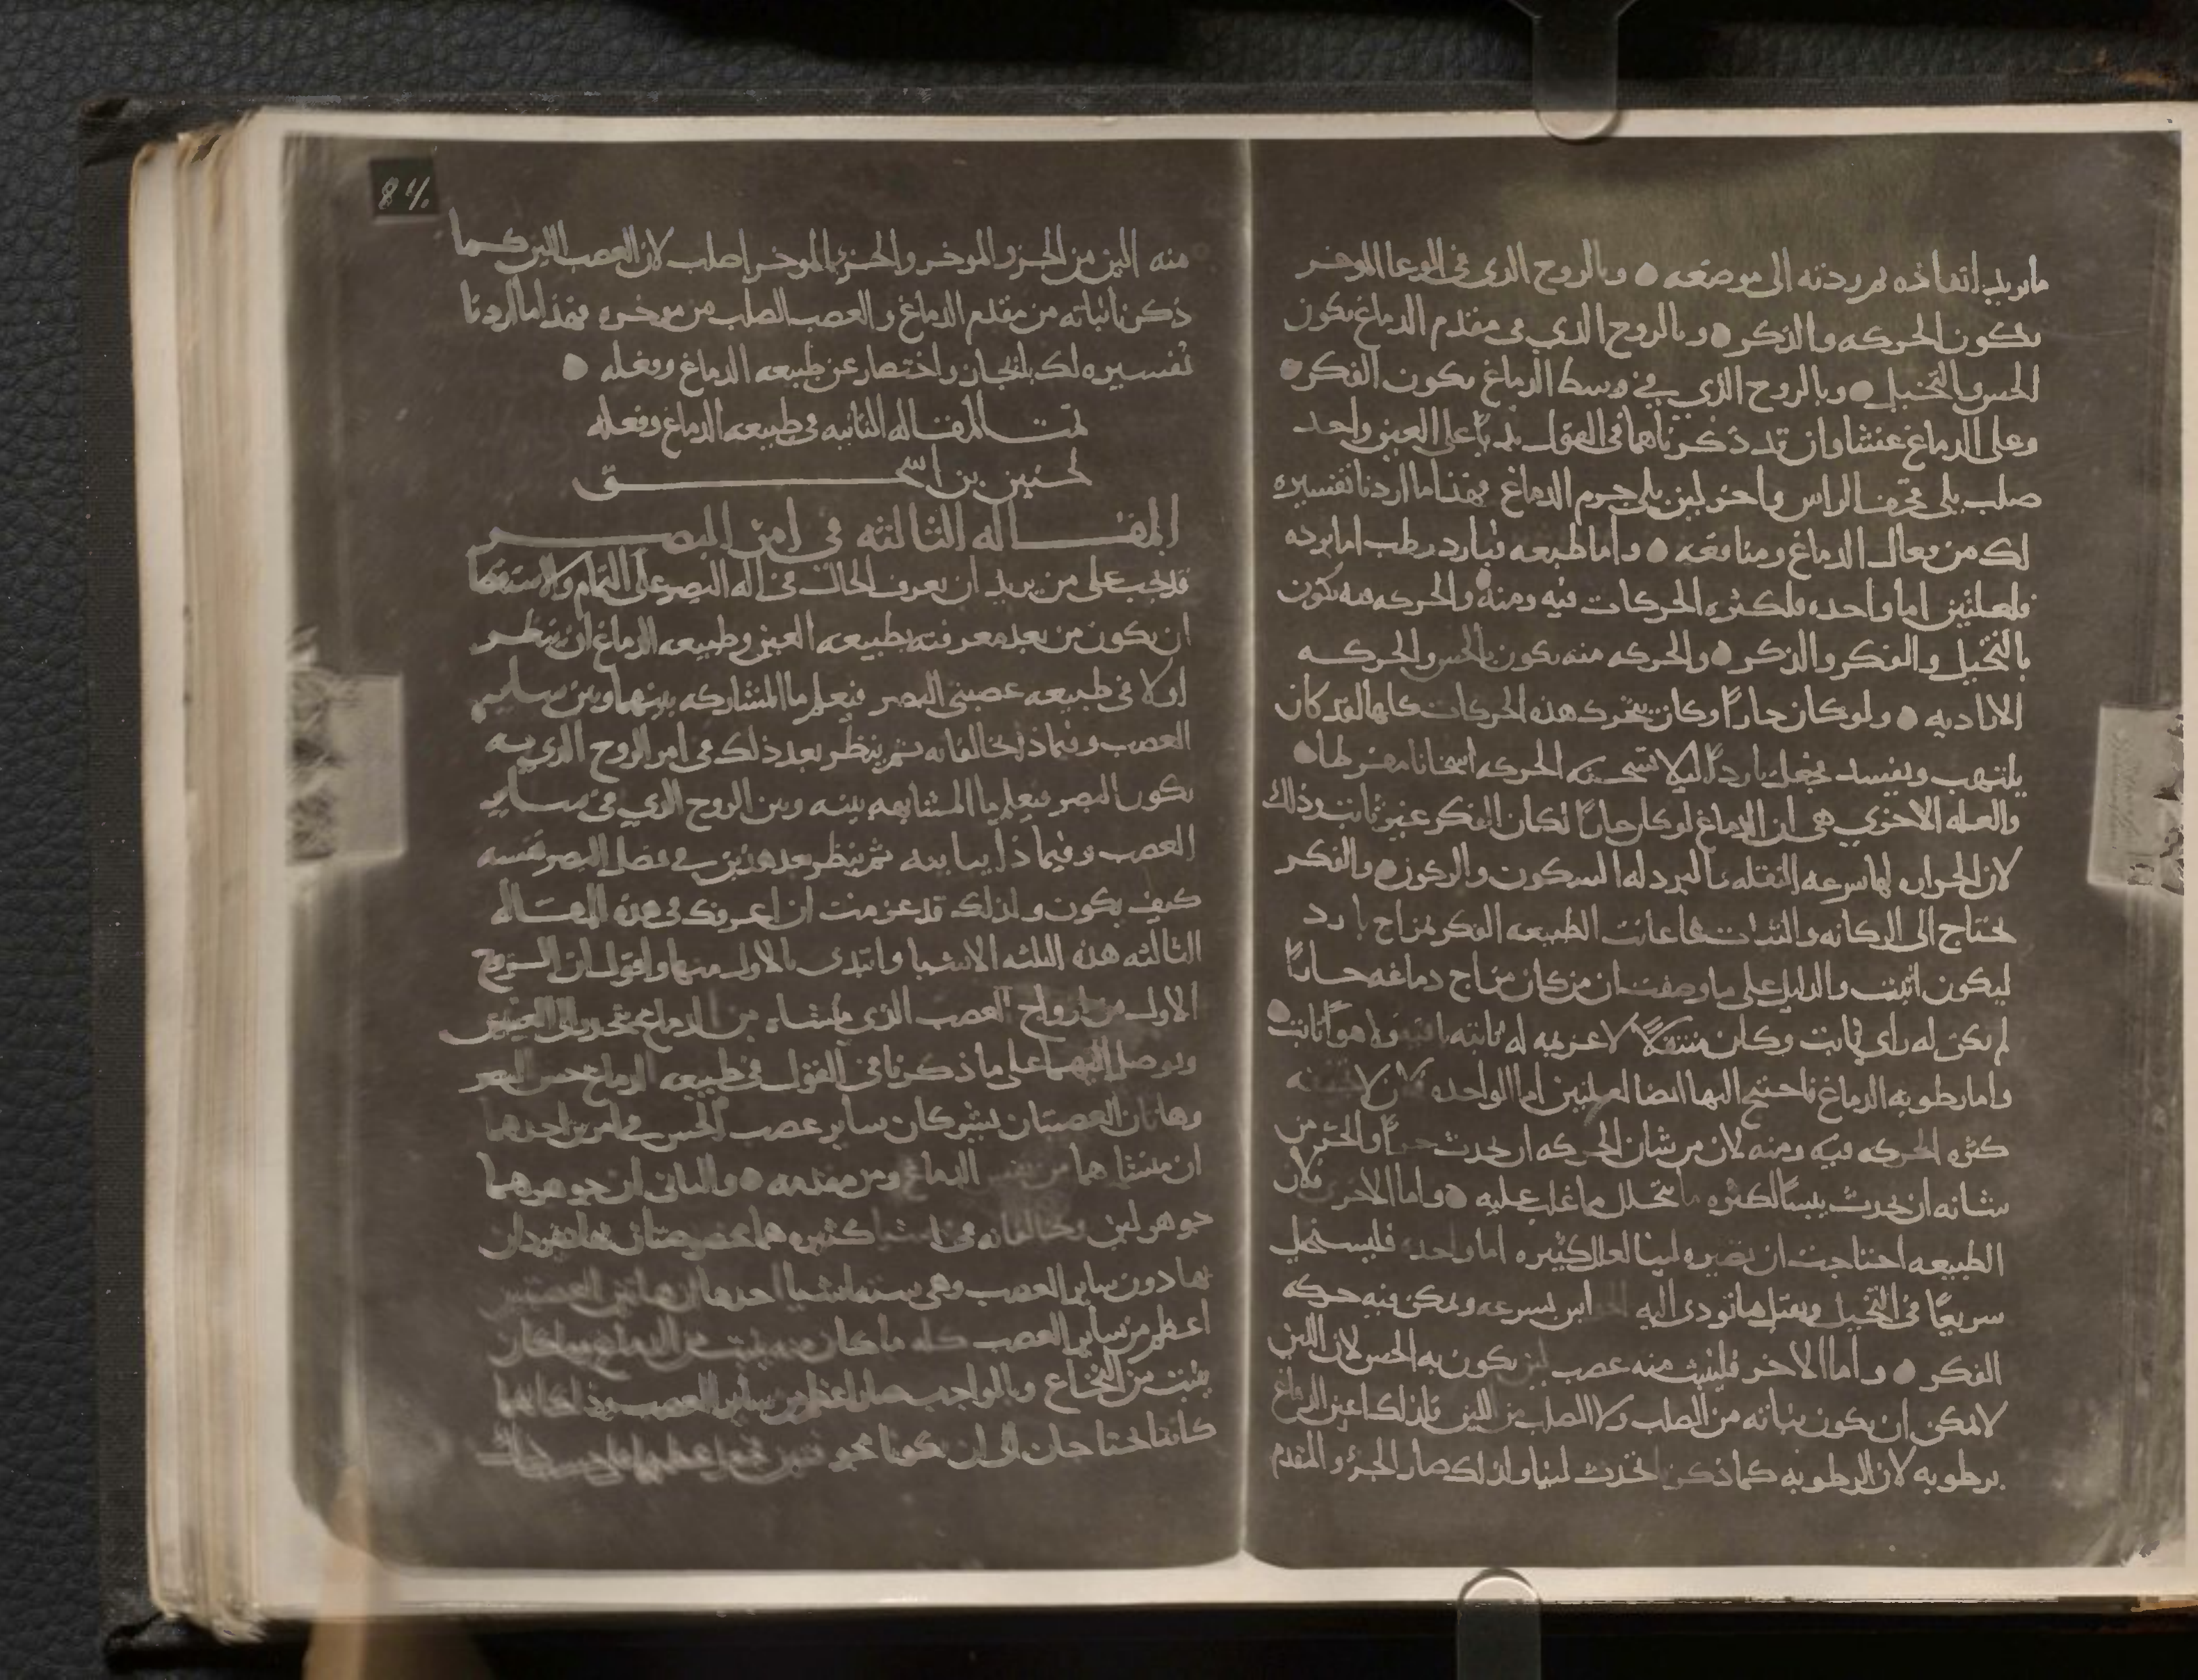 ما يريد انفاذه ثم ردته الى موضعه ● وبالروح الذي في الوعا الموخر
يكون الحركه والذكر ● وبالروح الذي في مقدم الدماغ يكون
الحس والتخيل ● وبالروح الذي في وسط الدماغ يكون الفكر ●
وعلى الدماغ غشاوان قد ذكرناهما في القول على العين واحد
صلب يلي قحف الراس واخر لين يلي جرم الدماغ فهذا ما اردنا تفسيره
لك من فعال الدماغ ومنافعه ● واما طبيعه فبارد رطب اما برده
فلعلتين اما واحده فلكثره الحركات فيه ومنه والحركه فيه تكون
بالتخيل والفكر والذكر ● والحركه منه تكون بالحس والحركه
الاراديه ● ولو كان حارا وكان يتحرك هذه الحركات كلها لقد كان
يلتهب ويفسد فجعل باردا ليلا تسخنه الحركه اسخانا مفرطا ●
والعله الاخري هي ان الدماغ لو كان حارا لكان الفكر غير ثابت وذلك
لان الحراره لها سرعه النقله والبرد له السكون والركون ● والفكر
يحتاج الى الركانه والثبات فاعانت الطبيعه الفكر بمزاج بارد
ليكون اثبت والدليل على ما وصفت ان من كان مزاج دماغه حارا
لم يكن له راي ثابت وكان متنقلا لا عزيمه له ثابته
واما رطوبه الدماغ فاحتيج اليها ايضا لعلتين اما الواحده
كثره الحركه فيه ومنه لان من شان الحركه ان يحدث حرا والحر من
شانه ان يحدث يبسا لكثره ما يتحلل مما غلب عليه ● واما الاخرى فلان
الطبيعه احتاجت ان تصيره لينا لعلل كثيره اما واحده فليستحيل
سريعا في التخيل ويقبل ما تودي اليه الحواس بسرعه ويمكن فيه حركه
الفكر ● واما الاخر فلينبت منه عصب لين يكون به الحس لان اللين
لا يمكن ان يكون نباته من الصلب ولا الصلب من اللين فلذلك اعين الدماغ
برطوبه لان الرطوبه كما ذكرنا تحدث لينا ولذلك صار الجزو المقدم
84
منه الين من الجزو الموخر والجزو الموخر اصلب لان العصب اللين كما
ذكرنا نباته من مقدم الدماغ والعصب الصلب من موخره فهذا ما اردنا
تفسيره لك بايجاز واختصار عن طبيعه الدماغ وفعله ●
تمت المقاله الثانيه في طبيعه الدماغ وفعله
لحنين بن اسحق
المقاله الثالثه في امر البصر
قد يجب على من يريد ان يعرف الحال في اله البصر على التمام والاستقصا
ان يكون من بعد معرفته بطبيعه العين وطبيعه الدماغ ان ينظر
اولا في طبيعه عصبتي البصر فيعلم ما المشاركه بينهما وبين ساير
العصب وفيما ذا يخالفانه ثم ينظر بعد ذلك في امر الروح الذي به
يكون البصر فيعلم ما المشابهه بينه وبين الروح الذي في ساير
العصب وفيما ذا يباينه ثم ينظر بعد هذين في فعل البصر نفسه
كيف يكون ولذلك قد عزمت ان اعرفك في هذه المقاله
الثالثه هذه الثلثه الاشيا وابتدى بالاول منها واقول ان الزوج
الاول من ازواج العصب الذي منشاه من الدماغ ينحدر الى العينين
ويوصل اليهما على ما ذكرنا في القول في طبيعه الدماغ حس البصر
وهاتان العصبتان يشركان ساير عصب الحس في امرين احدهما
ان منشاهما من نفس الدماغ ومن مقدمه ● والثاني ان جوهرهما
جوهر لين ويخالفانه في اشيا كثيره هما مخصوصتان بها منفردتان
بها دون ساير العصب وهي سته اشيا احدها ان هاتين العصبتين
اعظم من ساير العصب كله ما كان منه ينبت من الدماغ وما كان
ينبت من النخاع وبالواجب صارا اعظم من ساير العصب وذلك انهما
كانتا تحتاجان الى ان يكونا مجوفتين